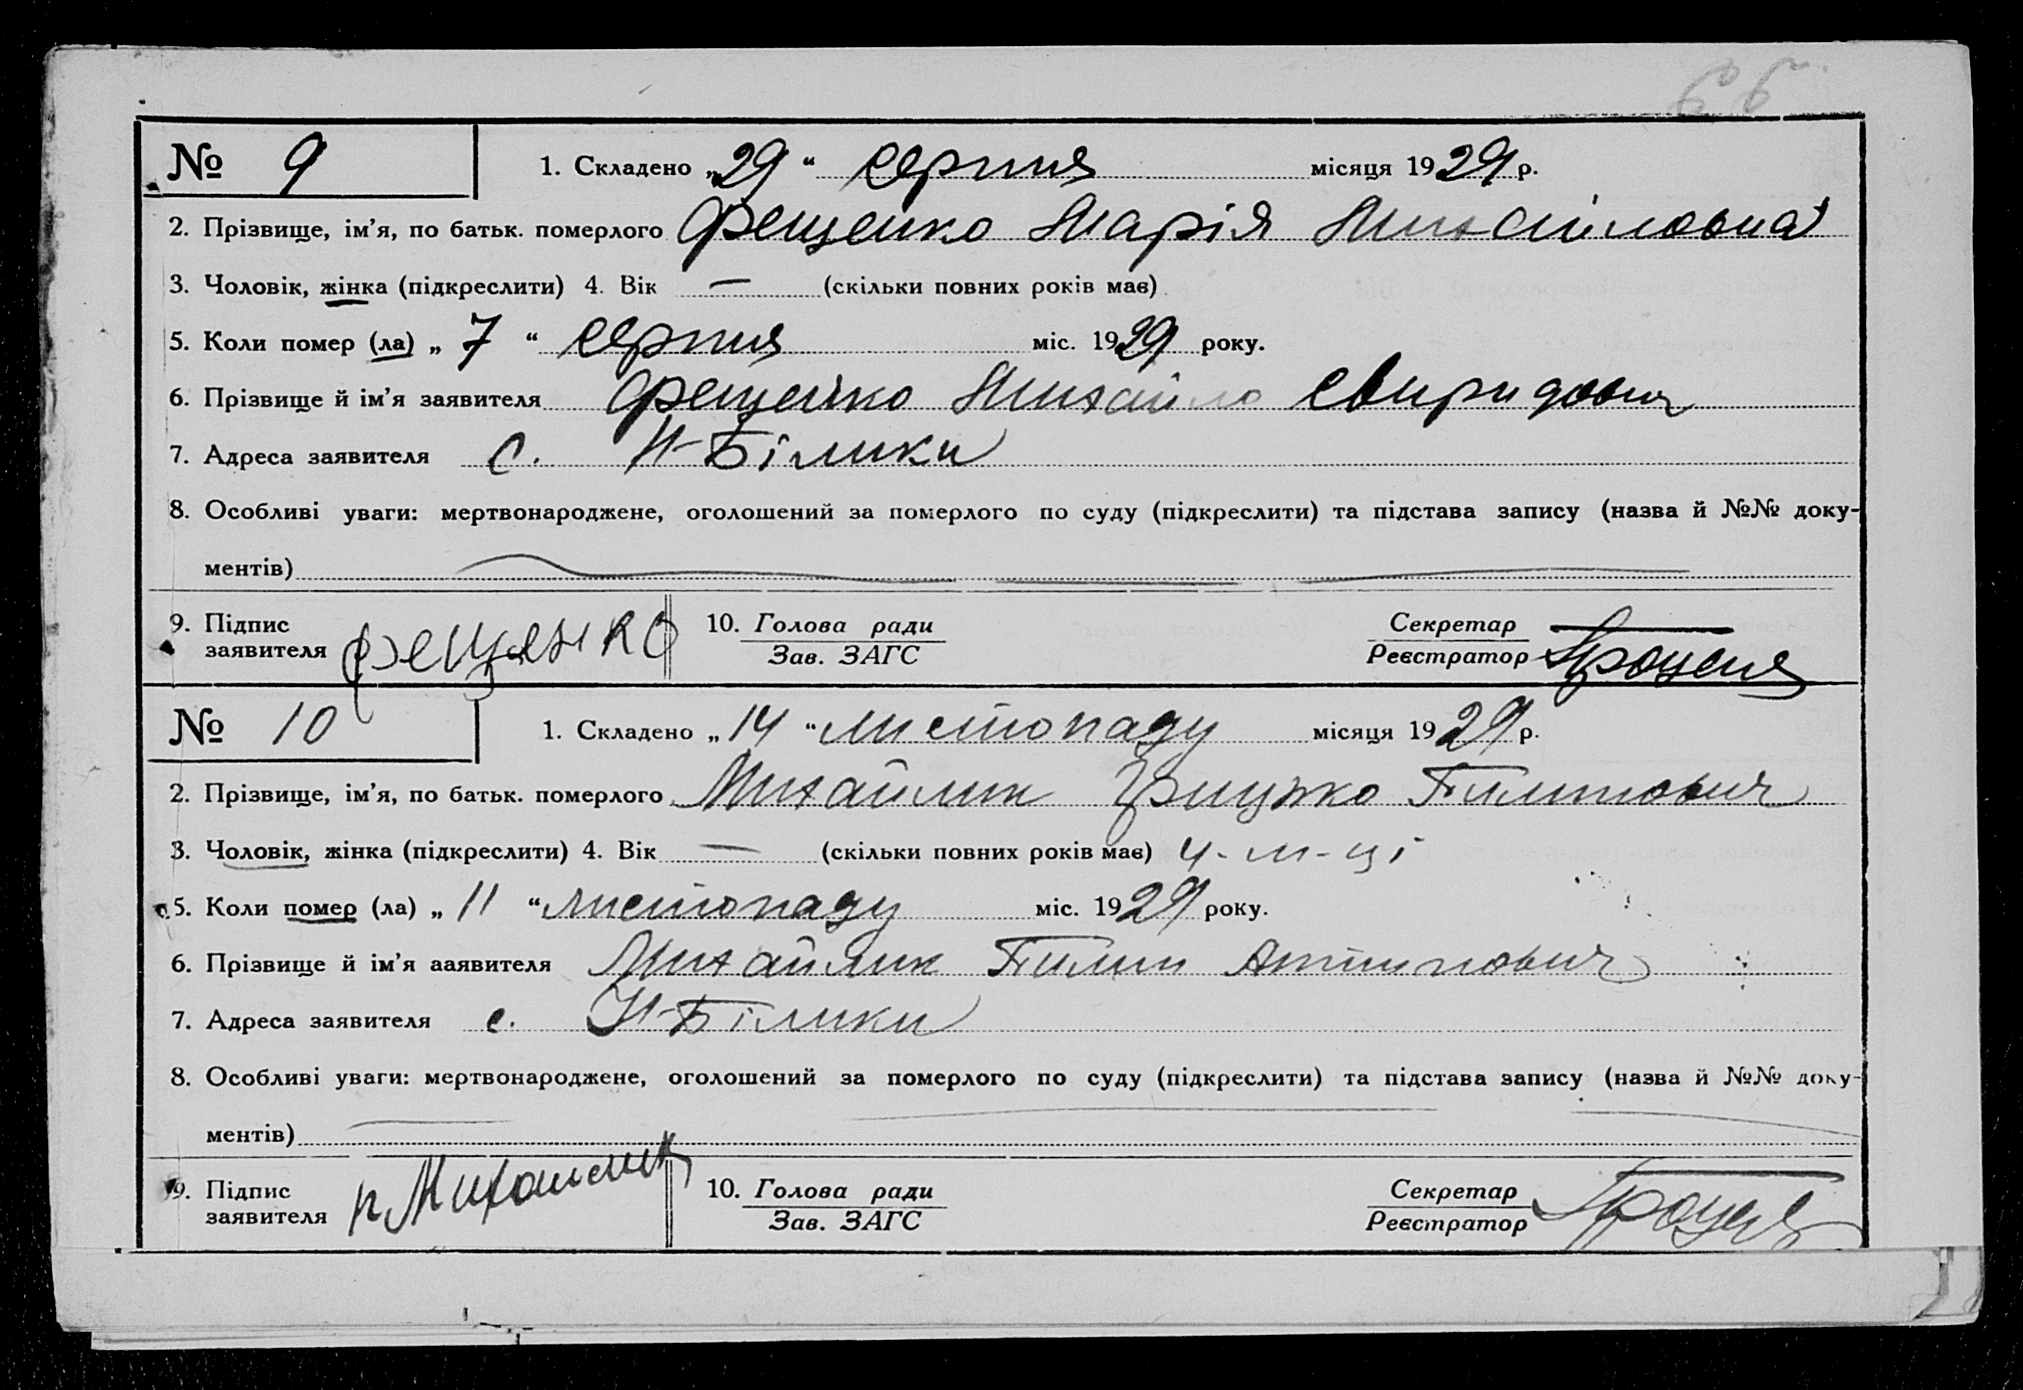 66
№ 9 1. Складено „29“ серпня місяця 1929 р.
2. Прізвище, ім’я, по батьк. померлого Фещенко Марія Михайловна
3. Чоловік, жінка (підкреслити) 4. Вік — (скільки повних років має)
5. Коли помер (ла) „ 7 “ серпня міс. 1929 року.
6. Прізвище й ім’я заявителя Фещенко Михайло Свиридович
7. Адреса заявителя с. Н-Білики
8. Особливі уваги: мертвонароджене, оголошений за померлого по суду (підкреслити) та підстава запису (назва й №№ доку-
ментів)
9. Підпис заявителя Фещенко 10. Голова ради Секретар
Зав. ЗАГС Реєстратор
№ 10 1. Складено „14“ листопаду місяця 1929 р.
2. Прізвище, ім’я, по батьк. померлого Михайлик Грицько Пилипович
3. Чоловік, жінка (підкреслити) 4. Вік — (скільки повних років має) 4-м-ці
5. Коли помер (ла) „ 11 “ листопаду міс. 1929 року.
6. Прізвище й ім’я аявителя Михайлик Пилип Антипович
7. Адреса заявителя с. Н-Білики
8. Особливі уваги: мертвонароджене, оголошений за померлого по суду (підкреслити) та підстава запису (назва й №№ доку-
ментів)
9. Підпис заявителя п Михайлик 10. Голова ради Секретар
Зав. ЗАГС Реєстратор